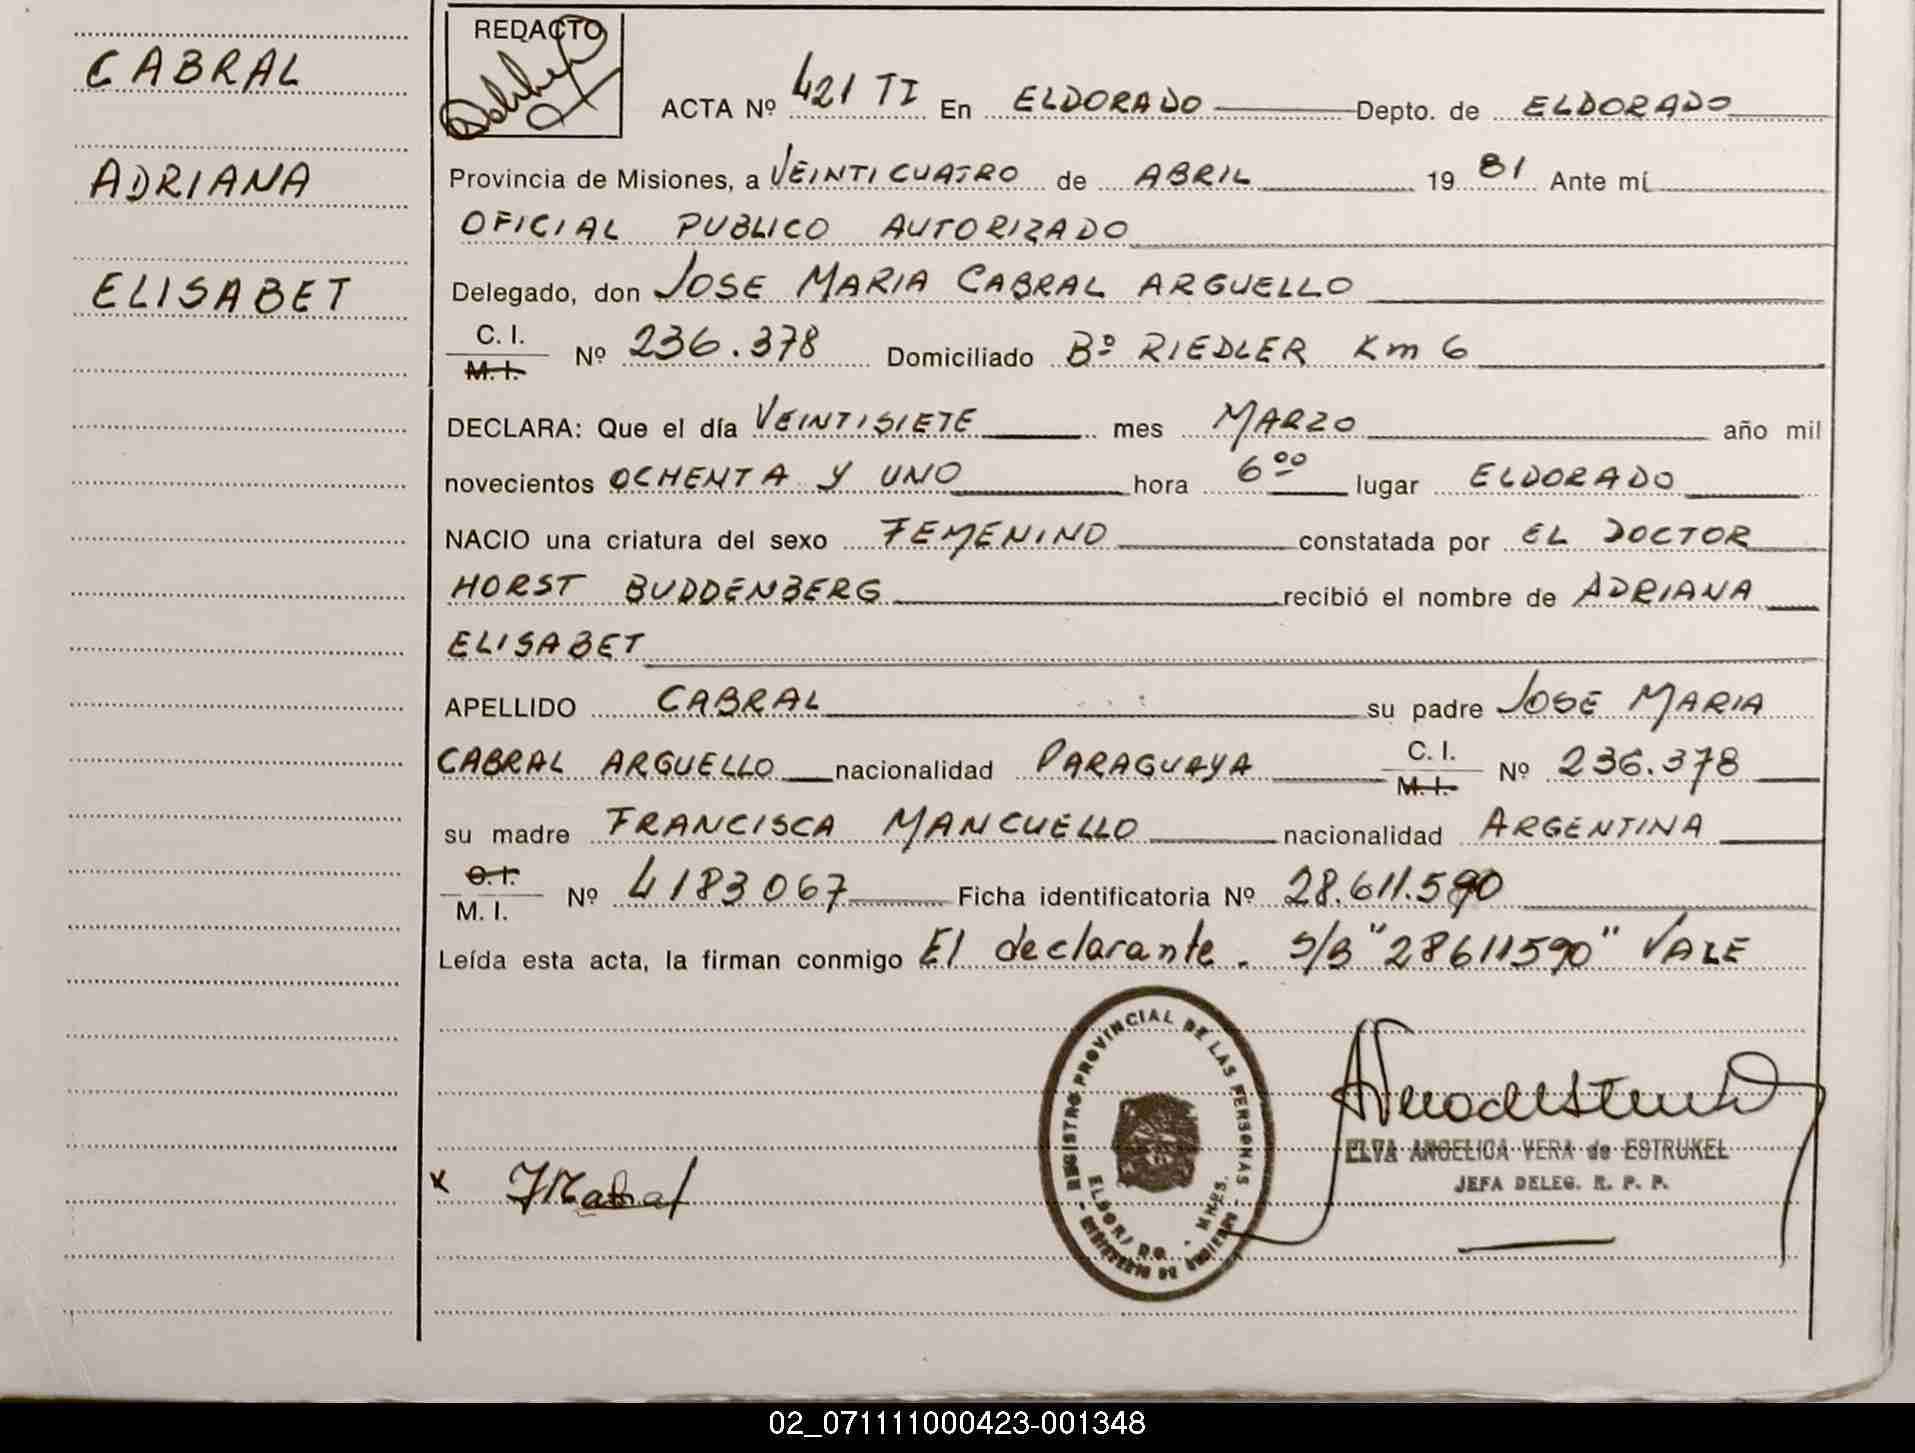 CABRAL
ADRIANA
ELISABET
REDACTO
ACTA Nº 421 TI En ELDORADO Depto. de ELDORADO
Provincia de Misiones, a VEINTICUATRO de ABRIL 19 81 Ante mí
OFICIAL PUBLICO AUTORIZADO
Delegado, don JOSE MARIA CABRAL ARGUELLO
C. I.
M. I. Nº 236.378 Domiciliado Bº RIEDLER Km 6
DECLARA: Que el día VEINTISIETE mes MARZO año mil
novecientos OCHENTA Y UNO hora 6⁰⁰ lugar ELDORADO
NACIO una criatura del sexo FEMENINO constatada por EL DOCTOR
HORST BUDDENBERG recibió el nombre de ADRIANA
ELISABET
APELLIDO CABRAL su padre JOSE MARIA
CABRAL ARGUELLO nacionalidad PARAGUAYA C. I. M. I. Nº 236.378
su madre FRANCISCA MANCUELLO nacionalidad ARGENTINA
C. I.
M. I. Nº 4183067 Ficha identificatoria Nº 28.611.590
Leída esta acta, la firman conmigo El declarante. S/B "28611590" VALE
REGISTRO PROVINCIAL DE LAS PERSONAS
ELDORADO - MNES.
MINISTERIO DE GOBIERNO
ELVA ANGELICA VERA de ESTRUKEL
JEFA DELEG. R. P. P.
x JMCabral
02_071111000423-001348